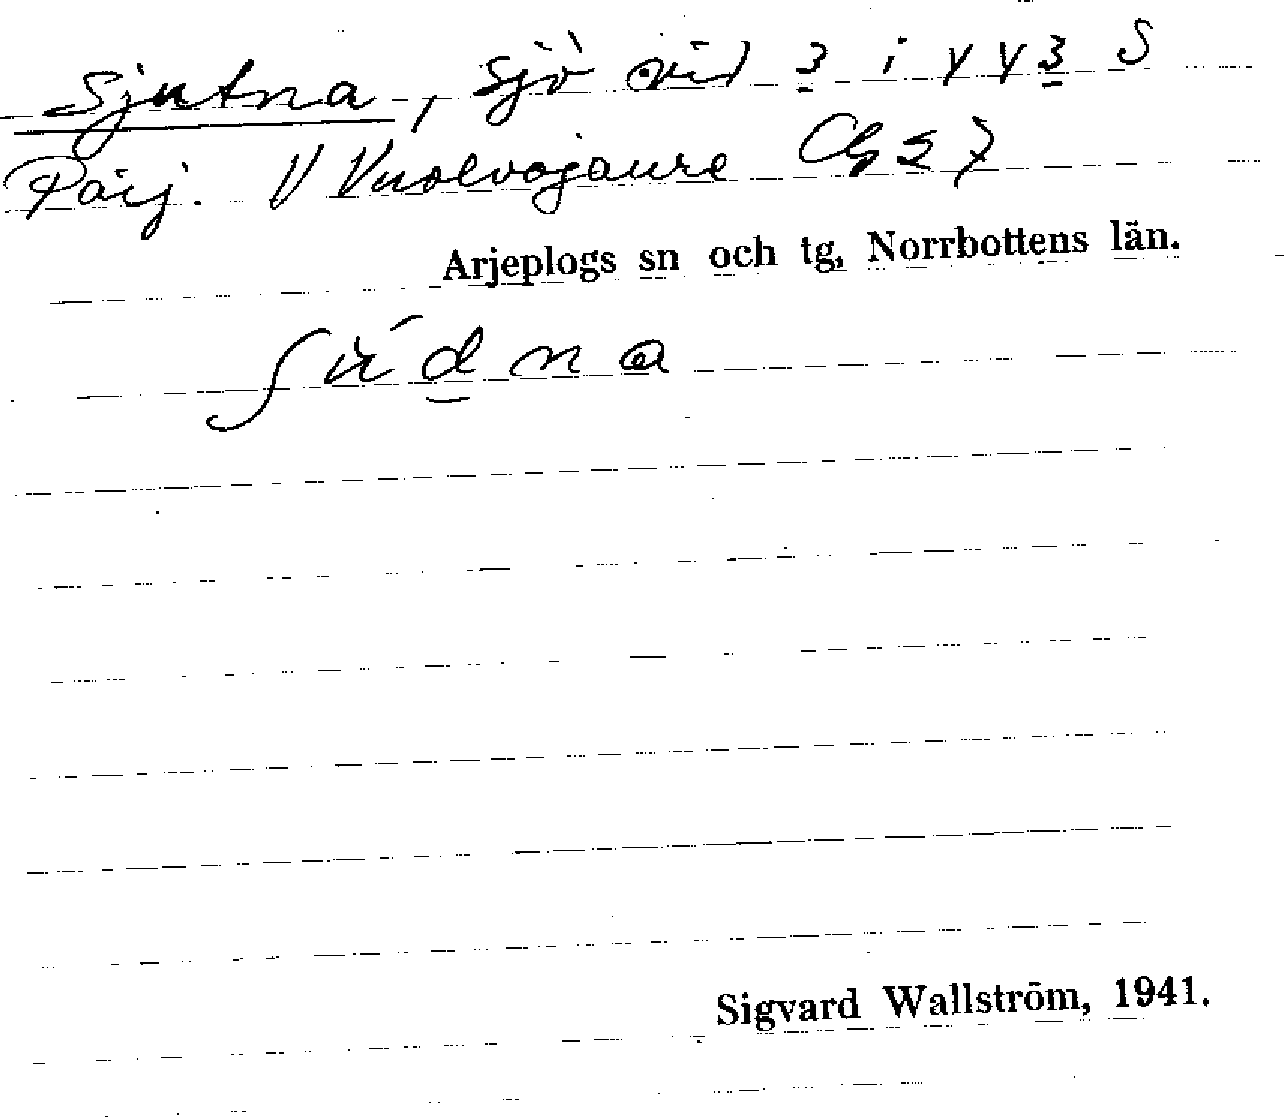 Sjutna, sjö vid 3 i 443 S
Pärj. V Vuolvojaure CG 27
Arjeplogs sn och tg, Norrbottens län.
ʃúdna
Sigvard Wallström, 1941.